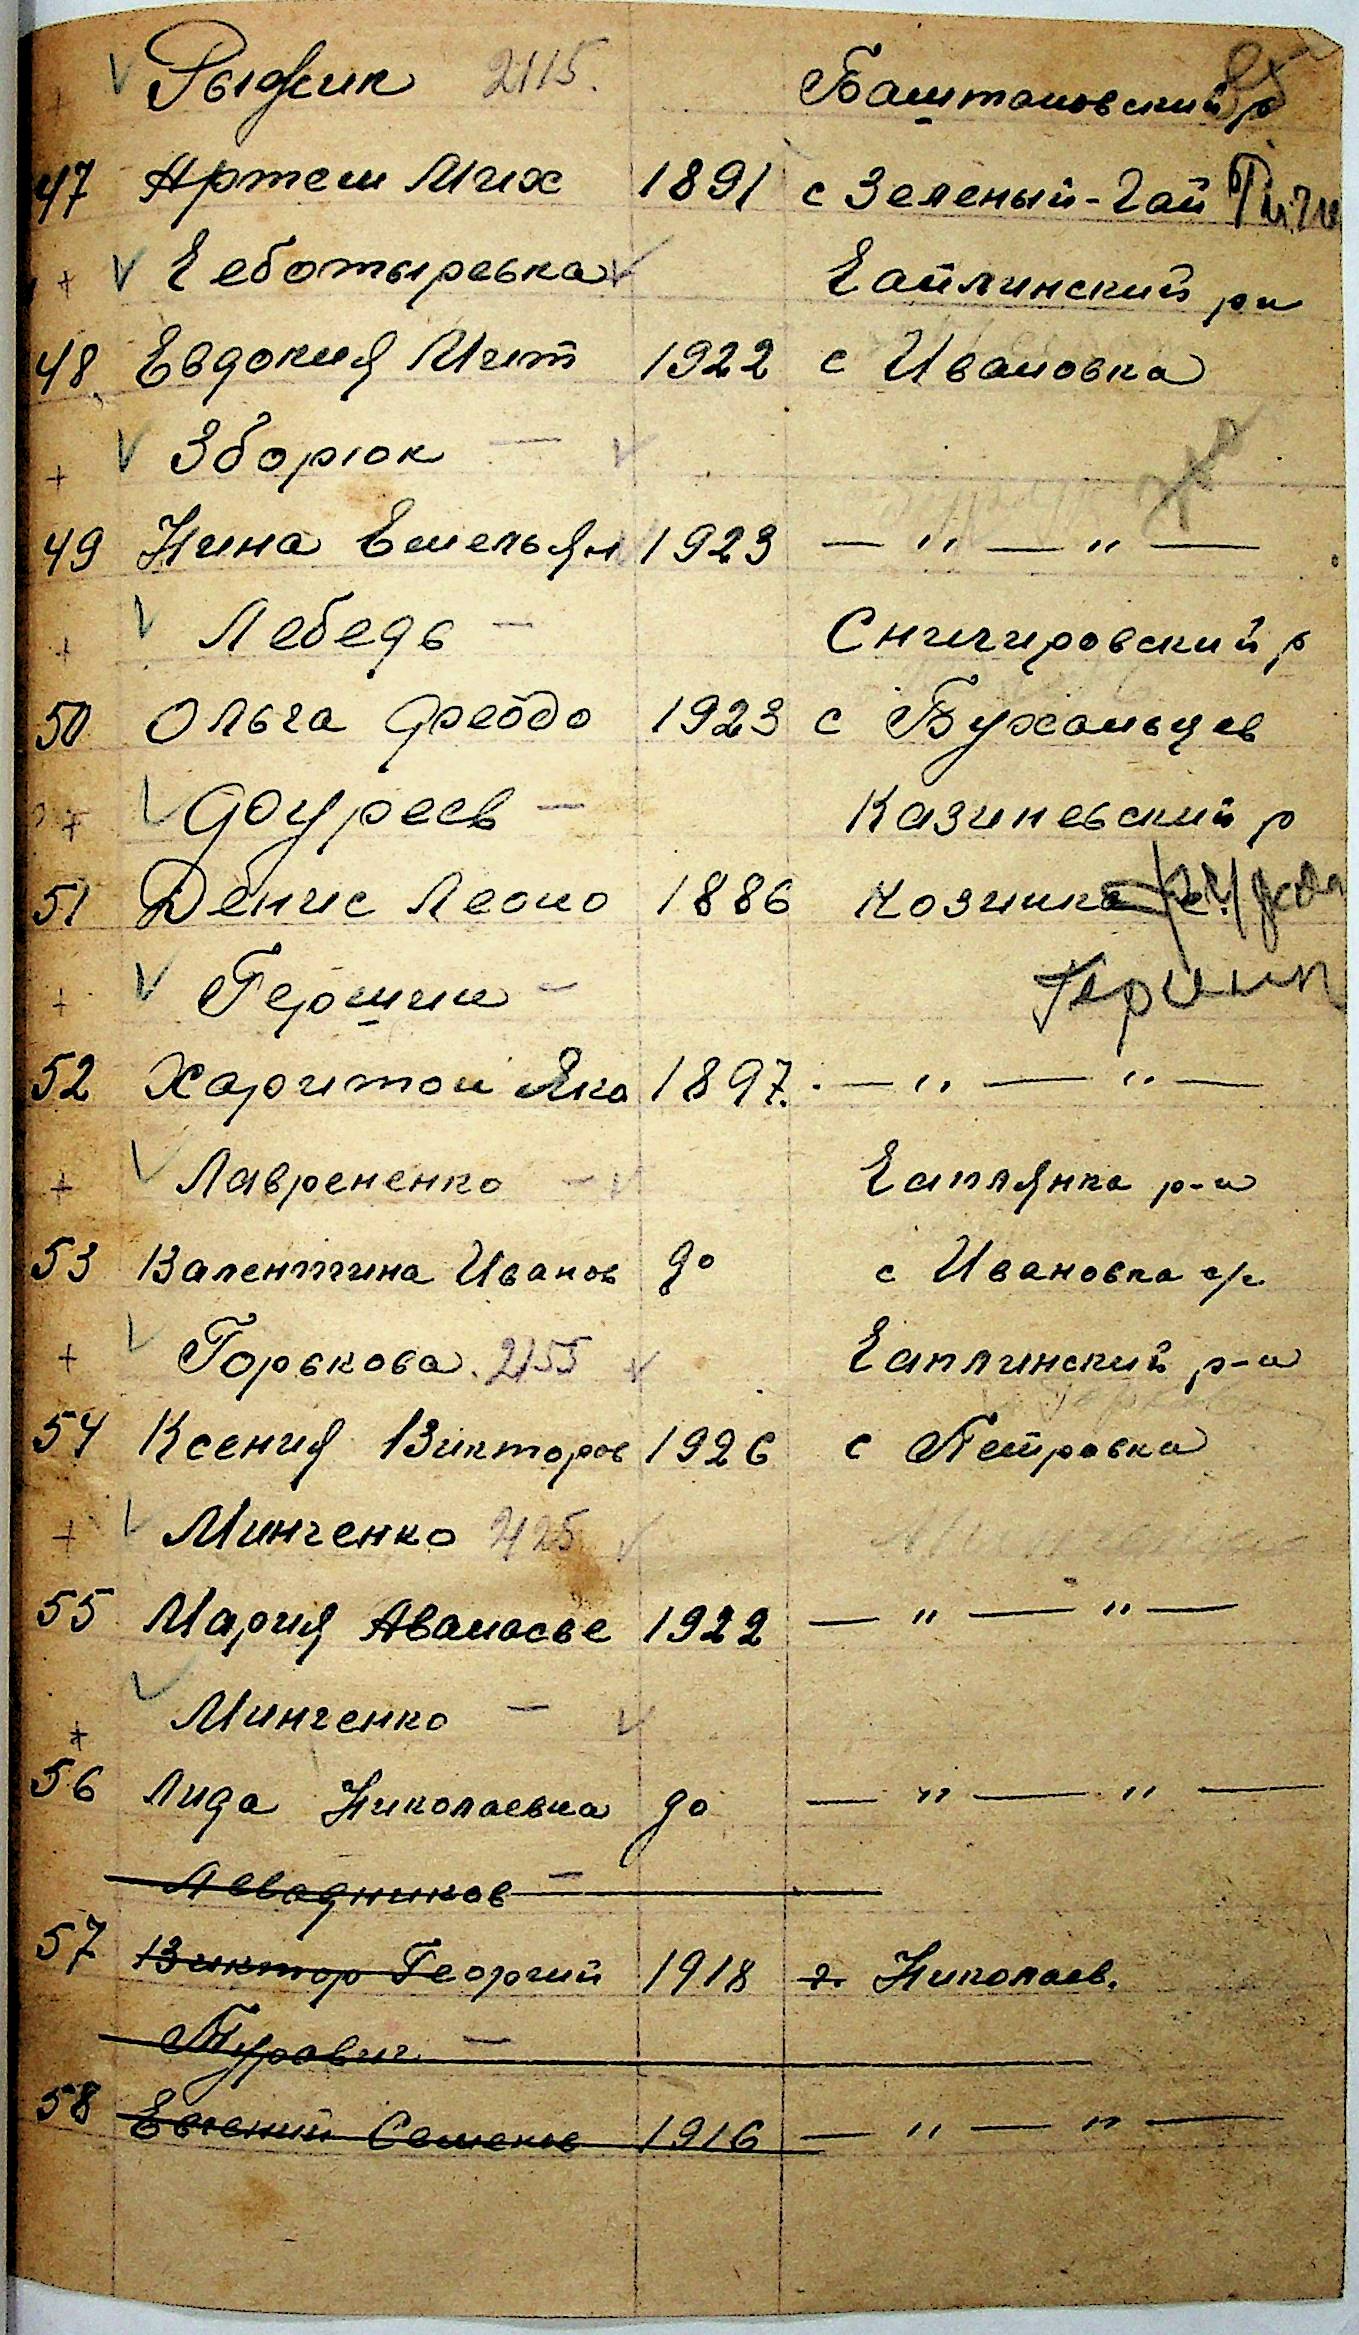 Рыжик 2115. Баштановский р
47 Артем Мих 1891 с Зеленый-Гай
+ Чеботыревка Чаплинский рн
48 Евдокия Мит 1922 с Ивановка
+ Зборюк —
49 Нина Емельян 1923 — " — " —
+ Лебедь — Снигировский р
50 Ольга Федо 1923 с Бухальцев
+ — Казиневский р
51 Денис Леон 1886 Козинка
+ Гершин — Гершин
52 Харитон Яко 1897. — " — " —
+ Лаврененко — Чаплянка р-н
53 Валентина Иванов до с Ивановка с/с
+ Горькова. 2155 Чаплинский р-н
54 Ксения Викторов 1926 с Петровка
+ Минченко 2125
55 Мария Аванасве 1922 — " — " —
+ Минченко —
56 Лида Николаевна до — " — " —
Левадников —
57 Виктор Георгий 1918 г. Николаев.
Туравич —
58 Евгений Семенов 1916 — " — " —